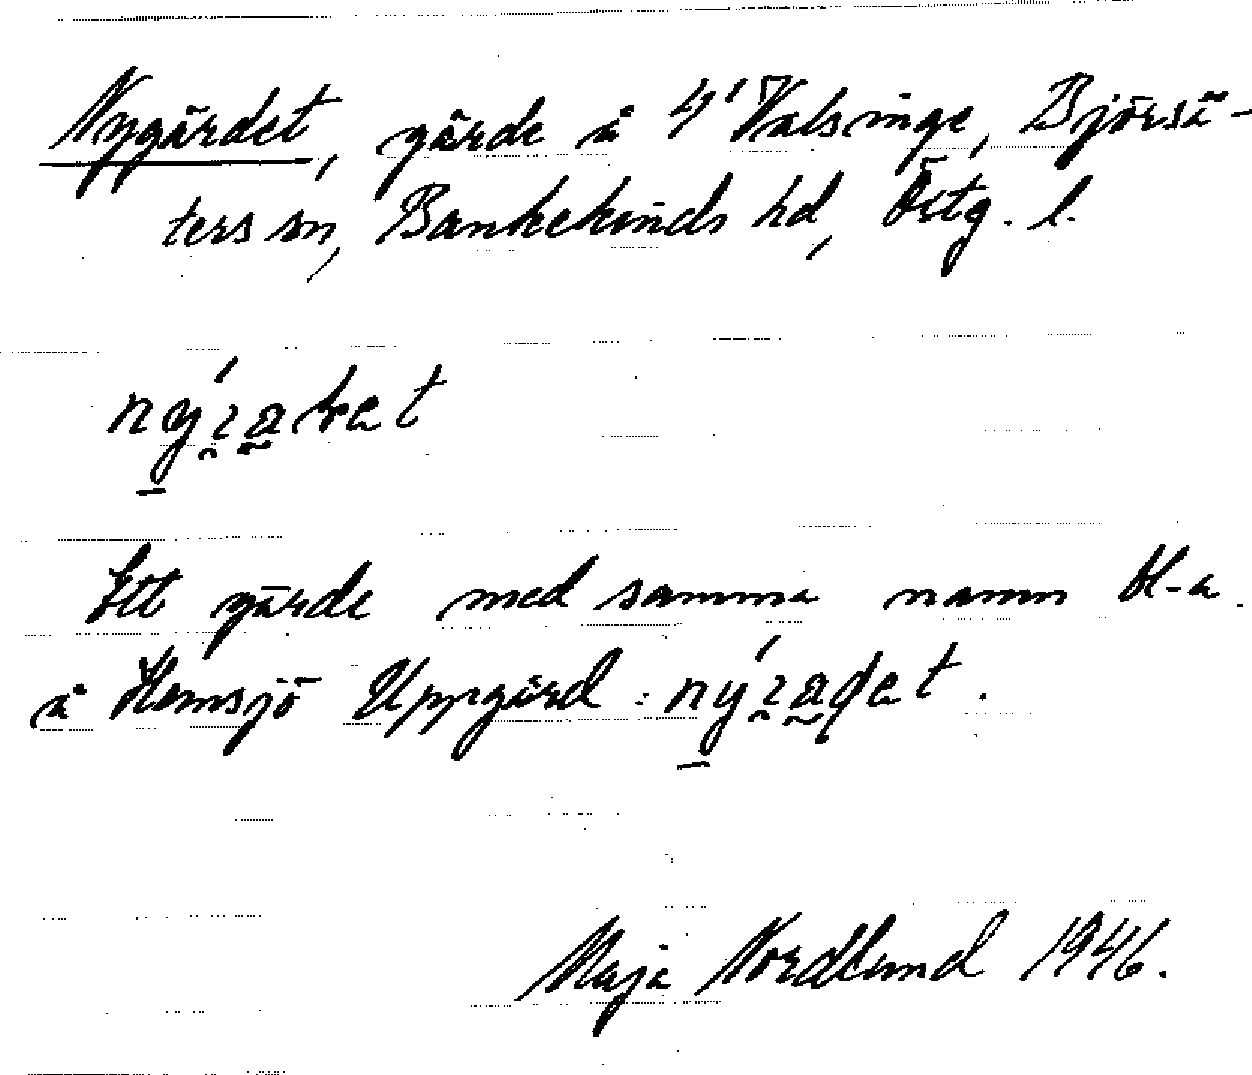 Nygärdet, gärde å 4' Valsinge, Björsä-
ters sn, Bankekinds hd, Östg. l.
Ett gärde med samma namn bl-a.
å Hemsjö Uppgård:
Maja Nordlund 1946.